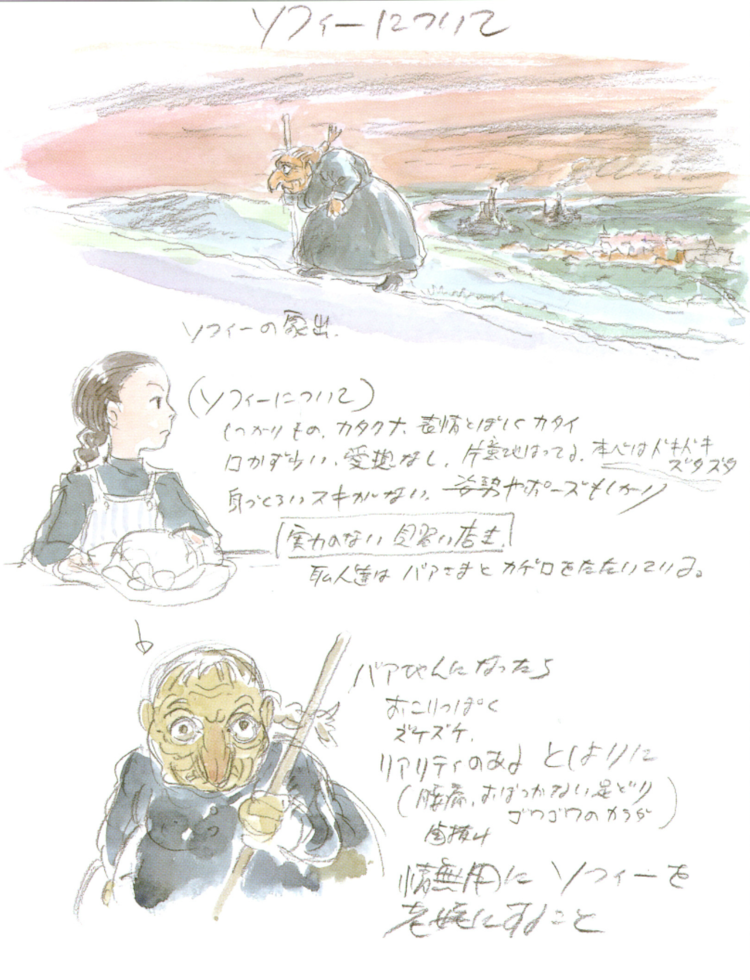 ソフィーについて
ソフィーの家出.
(ソフィーについて)
しっかりもの、カタクナ、表情とぼしくカタイ
口かず少い、愛想なし、片意地はってる、本心はドキドキ
ズタズタ
身づくろいスキがない、姿勢やポーズもしっかり
実力のない見習い店主.
職人達はバアさまとカゲ口をたたいている。
バアちゃんになったら
おこりっぽく
ズケズケ.
リアリティのある としよりに
(腰痛、おぼつかない足どり
ゴワゴワのカラダ)
歯抜け
情無用に ソフィーを
老婆にすること